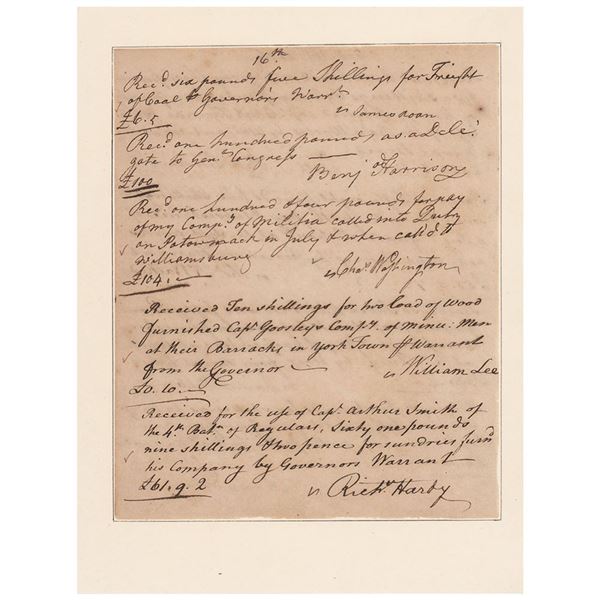 16.th
Rec.d six pounds five Shillings for Freight
of Coal Governor's Warr.t
£6.5 James Roan
Rec.d one hundred pounds as a Dele
gate to Gen.l Congress
£100 Benj Harrison
Rec.d one hundred & four pounds for pay
of my Comp.y of Militia called into Duty
on Potowmack in July & when call'd to
Williamsburg
£104.— Cha.s Washington
Received Ten shillings for two load of Wood
furnished Cap.t Goosley's Comp.y. of minu: Men
at their Barracks in York Town Warrant
from the Governor
£0.10.— William Lee
Received for the use of Cap.t Arthur Smith of
the 4.th Bat.n of Regulars, Sixty one pounds
nine shillings & two pence for sundries furn.d
his Company by Governors Warrant
£61.9.2
Rich.d Hardy